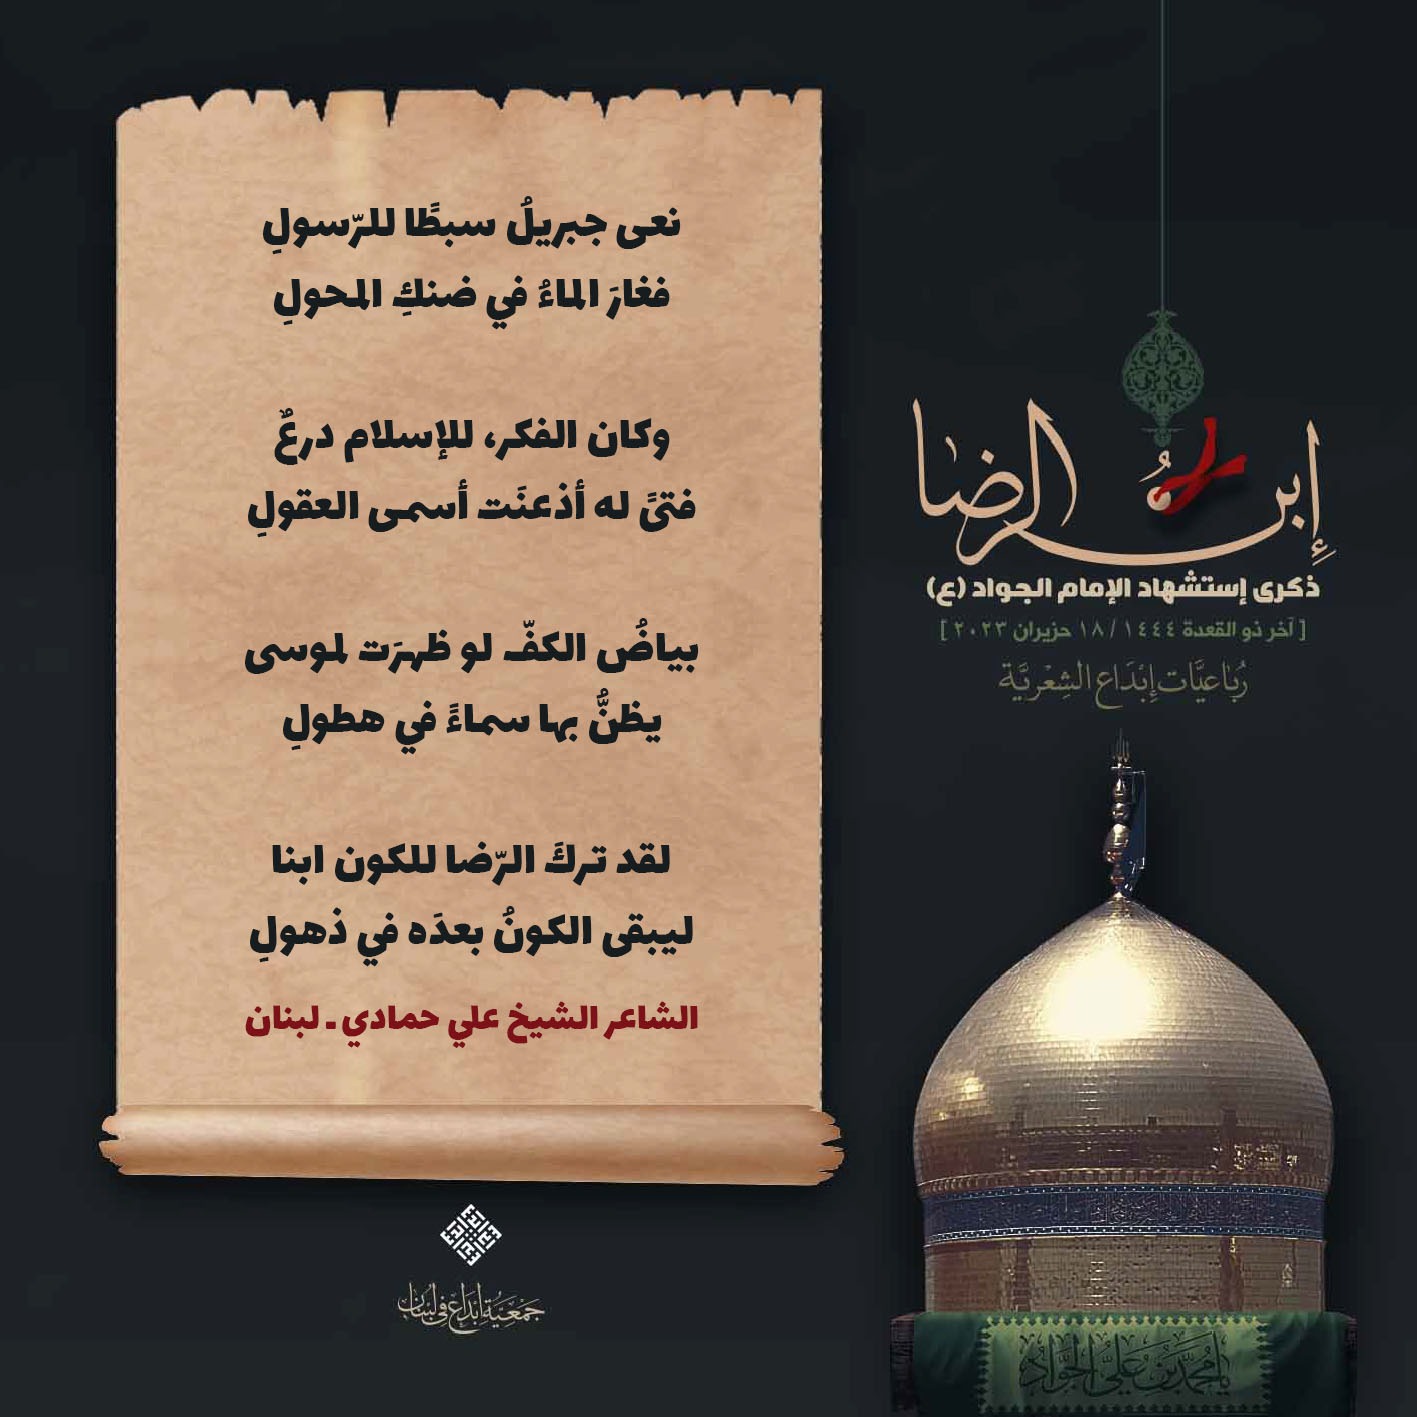 نعى جبريلُ سبطًا للرّسولِ
فغارَ الماءُ في ضنكِ المحولِ
وكان الفكر، للإسلام درعٌ
فتىً له أذعنَت أسمى العقولِ
بياضُ الكفّ لو ظهرَت لموسى
يظنُّ بها سماءً في هطولِ
لقد تركَ الرّضا للكون ابنا
ليبقى الكونُ بعدَه في ذهولِ
الشاعر الشيخ علي حمادي ـ لبنان
إبن الرضا
ذكرى إستشهاد الإمام الجواد (ع)
[ آخر ذو القعدة ١٤٤٤ / ١٨ حزيران ٢٠٢٣ ]
رُبَاعيَّات إبْدَاع الشِعْريَّة
جَمْعِيَّة إبْدَاع في لبْنَان
يا محمد بن علي الجواد